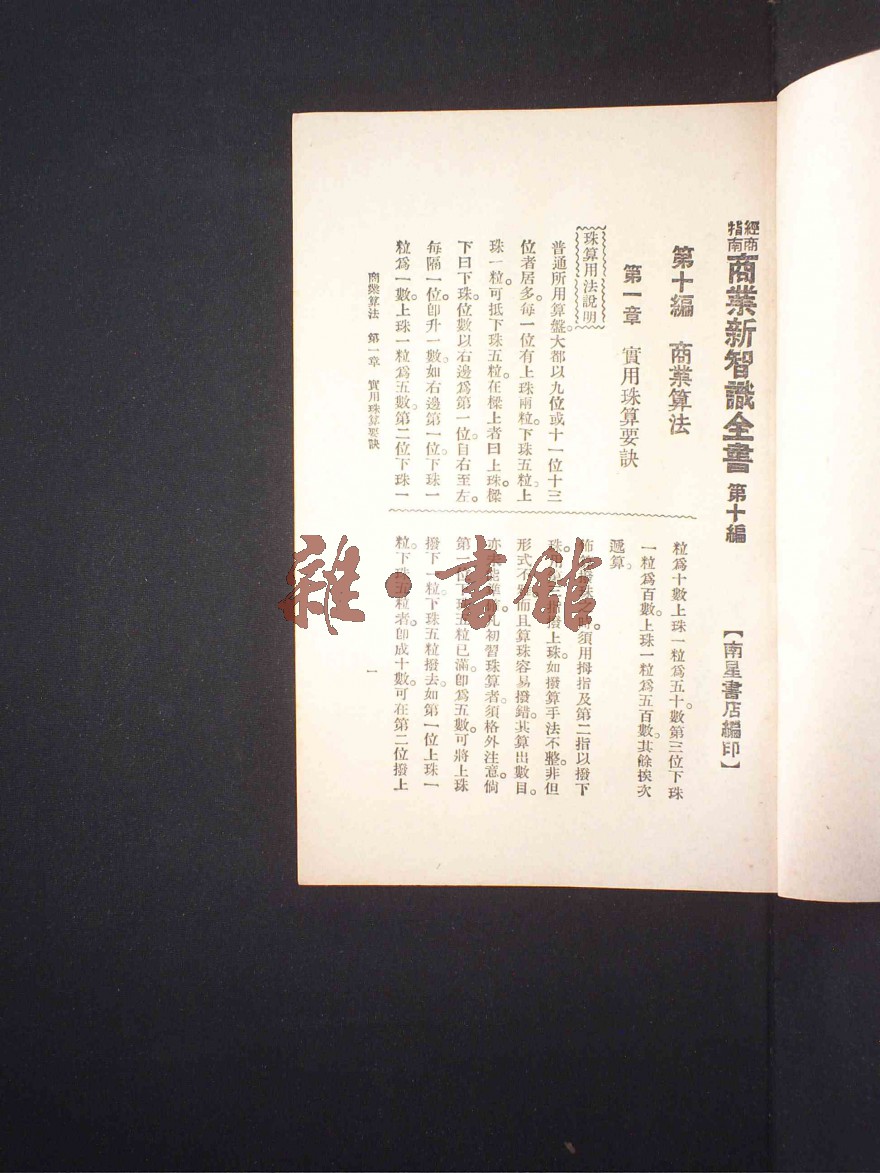 經商指南 商業新智識全書 第十編 【南星書店編印】
第十編 商業算法
第一章 實用珠算要訣
珠算用法說明
普通所用算盤。大都以九位或十一位十三
位者居多。每一位有上珠兩粒。下珠五粒。上
珠一粒。可抵下珠五粒。在樑上者曰上珠。樑
下曰下珠。位數以右邊爲第一位。自右至左。
每隔一位。卽升一數。如右邊第一位。下珠一
粒爲一數。上珠一粒爲五數。第二位下珠一
粒爲十數。上珠一粒爲五十數。第三位下珠
一粒爲百數。上珠一粒爲五百數。其餘挨次
遞算。
須用拇指及第二指以撥下
珠。撥上珠。如撥算手法不整。非但
形式不而且算珠容易撥錯。其算出數目。
亦凡初習珠算者。須格外注意。倘
第一位下珠五粒已滿。卽爲五數。可將上珠
撥下一粒。下珠五粒撥去。如第一位上珠一
粒。下珠五粒者。卽成十數。可在第二位撥上
商業算法 第一章 實用珠算要訣
一
雜·書館